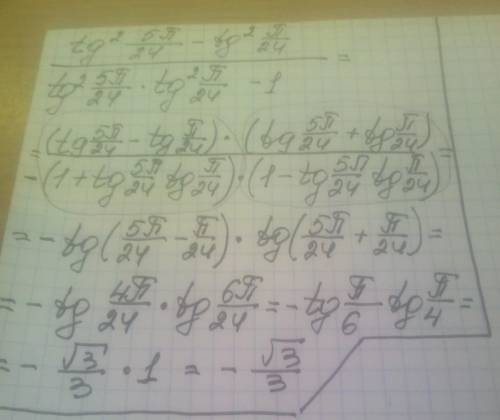 (tg² 5π/24 − tg² π/24) / (tg² 5π/24 · tg² π/24 − 1) =
= (tg 5π/24 − tg π/24) · (tg 5π/24 + tg π/24) / −(1 + tg 5π/24 tg π/24) · (1 − tg 5π/24 tg π/24) =
= − tg(5π/24 − π/24) · tg(5π/24 + π/24) =
= − tg 4π/24 · tg 6π/24 = − tg π/6 tg π/4 =
= − √3/3 · 1 = − √3/3